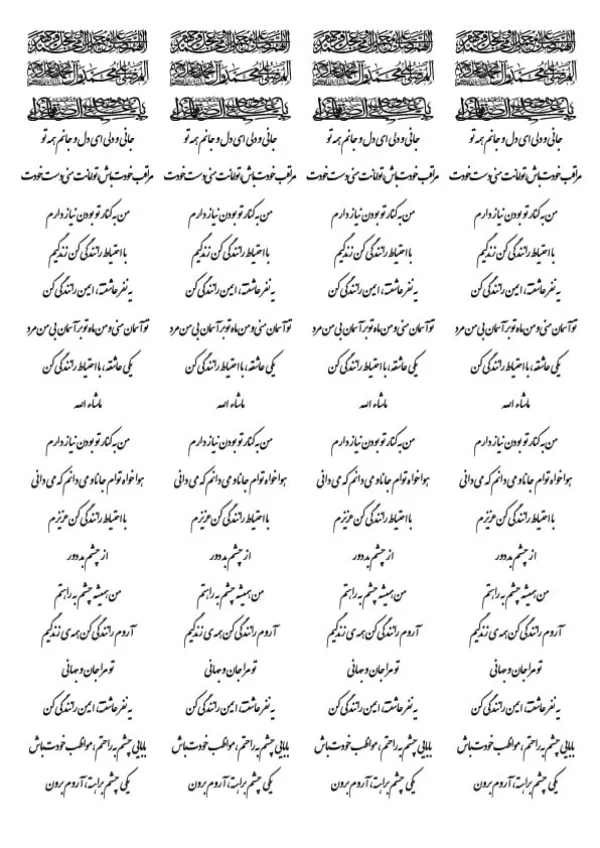 اللهم صل علی محمد و آل محمد و عجل فرجهم اللهم صل علی محمد و آل محمد و عجل فرجهم اللهم صل علی محمد و آل محمد و عجل فرجهم اللهم صل علی محمد و آل محمد و عجل فرجهم
جانی و دلی ای دل و جانم همه تو جانی و دلی ای دل و جانم همه تو جانی و دلی ای دل و جانم همه تو جانی و دلی ای دل و جانم همه تو
مراقب خودت باش، تو امانت منی دست خودت مراقب خودت باش، تو امانت منی دست خودت مراقب خودت باش، تو امانت منی دست خودت مراقب خودت باش، تو امانت منی دست خودت
من به کنار تو بودن نیاز دارم من به کنار تو بودن نیاز دارم من به کنار تو بودن نیاز دارم من به کنار تو بودن نیاز دارم
با احتیاط رانندگی کن زندگیم با احتیاط رانندگی کن زندگیم با احتیاط رانندگی کن زندگیم با احتیاط رانندگی کن زندگیم
یه نفر عاشقته، ایمن رانندگی کن یه نفر عاشقته، ایمن رانندگی کن یه نفر عاشقته، ایمن رانندگی کن یه نفر عاشقته، ایمن رانندگی کن
تو آسمان منی و من ماه تو بر آسمان بی من مرد تو آسمان منی و من ماه تو بر آسمان بی من مرد تو آسمان منی و من ماه تو بر آسمان بی من مرد تو آسمان منی و من ماه تو بر آسمان بی من مرد
یکی عاشقه، با احتیاط رانندگی کن یکی عاشقه، با احتیاط رانندگی کن یکی عاشقه، با احتیاط رانندگی کن یکی عاشقه، با احتیاط رانندگی کن
ماشاء الله ماشاء الله ماشاء الله ماشاء الله
من به کنار تو بودن نیاز دارم من به کنار تو بودن نیاز دارم من به کنار تو بودن نیاز دارم من به کنار تو بودن نیاز دارم
هواخواه توام جانا و می دانم که می دانی هواخواه توام جانا و می دانم که می دانی هواخواه توام جانا و می دانم که می دانی هواخواه توام جانا و می دانم که می دانی
با احتیاط رانندگی کن عزیزم با احتیاط رانندگی کن عزیزم با احتیاط رانندگی کن عزیزم با احتیاط رانندگی کن عزیزم
از چشم بد دور از چشم بد دور از چشم بد دور از چشم بد دور
من همیشه چشم به راهتم من همیشه چشم به راهتم من همیشه چشم به راهتم من همیشه چشم به راهتم
آروم رانندگی کن همه ی زندگیم آروم رانندگی کن همه ی زندگیم آروم رانندگی کن همه ی زندگیم آروم رانندگی کن همه ی زندگیم
تو مرا جان و جهانی تو مرا جان و جهانی تو مرا جان و جهانی تو مرا جان و جهانی
یه نفر عاشقته، ایمن رانندگی کن یه نفر عاشقته، ایمن رانندگی کن یه نفر عاشقته، ایمن رانندگی کن یه نفر عاشقته، ایمن رانندگی کن
بابایی چشم به راهتم، مواظب خودت باش بابایی چشم به راهتم، مواظب خودت باش بابایی چشم به راهتم، مواظب خودت باش بابایی چشم به راهتم، مواظب خودت باش
یکی چشم براهته، آروم برون یکی چشم براهته، آروم برون یکی چشم براهته، آروم برون یکی چشم براهته، آروم برون